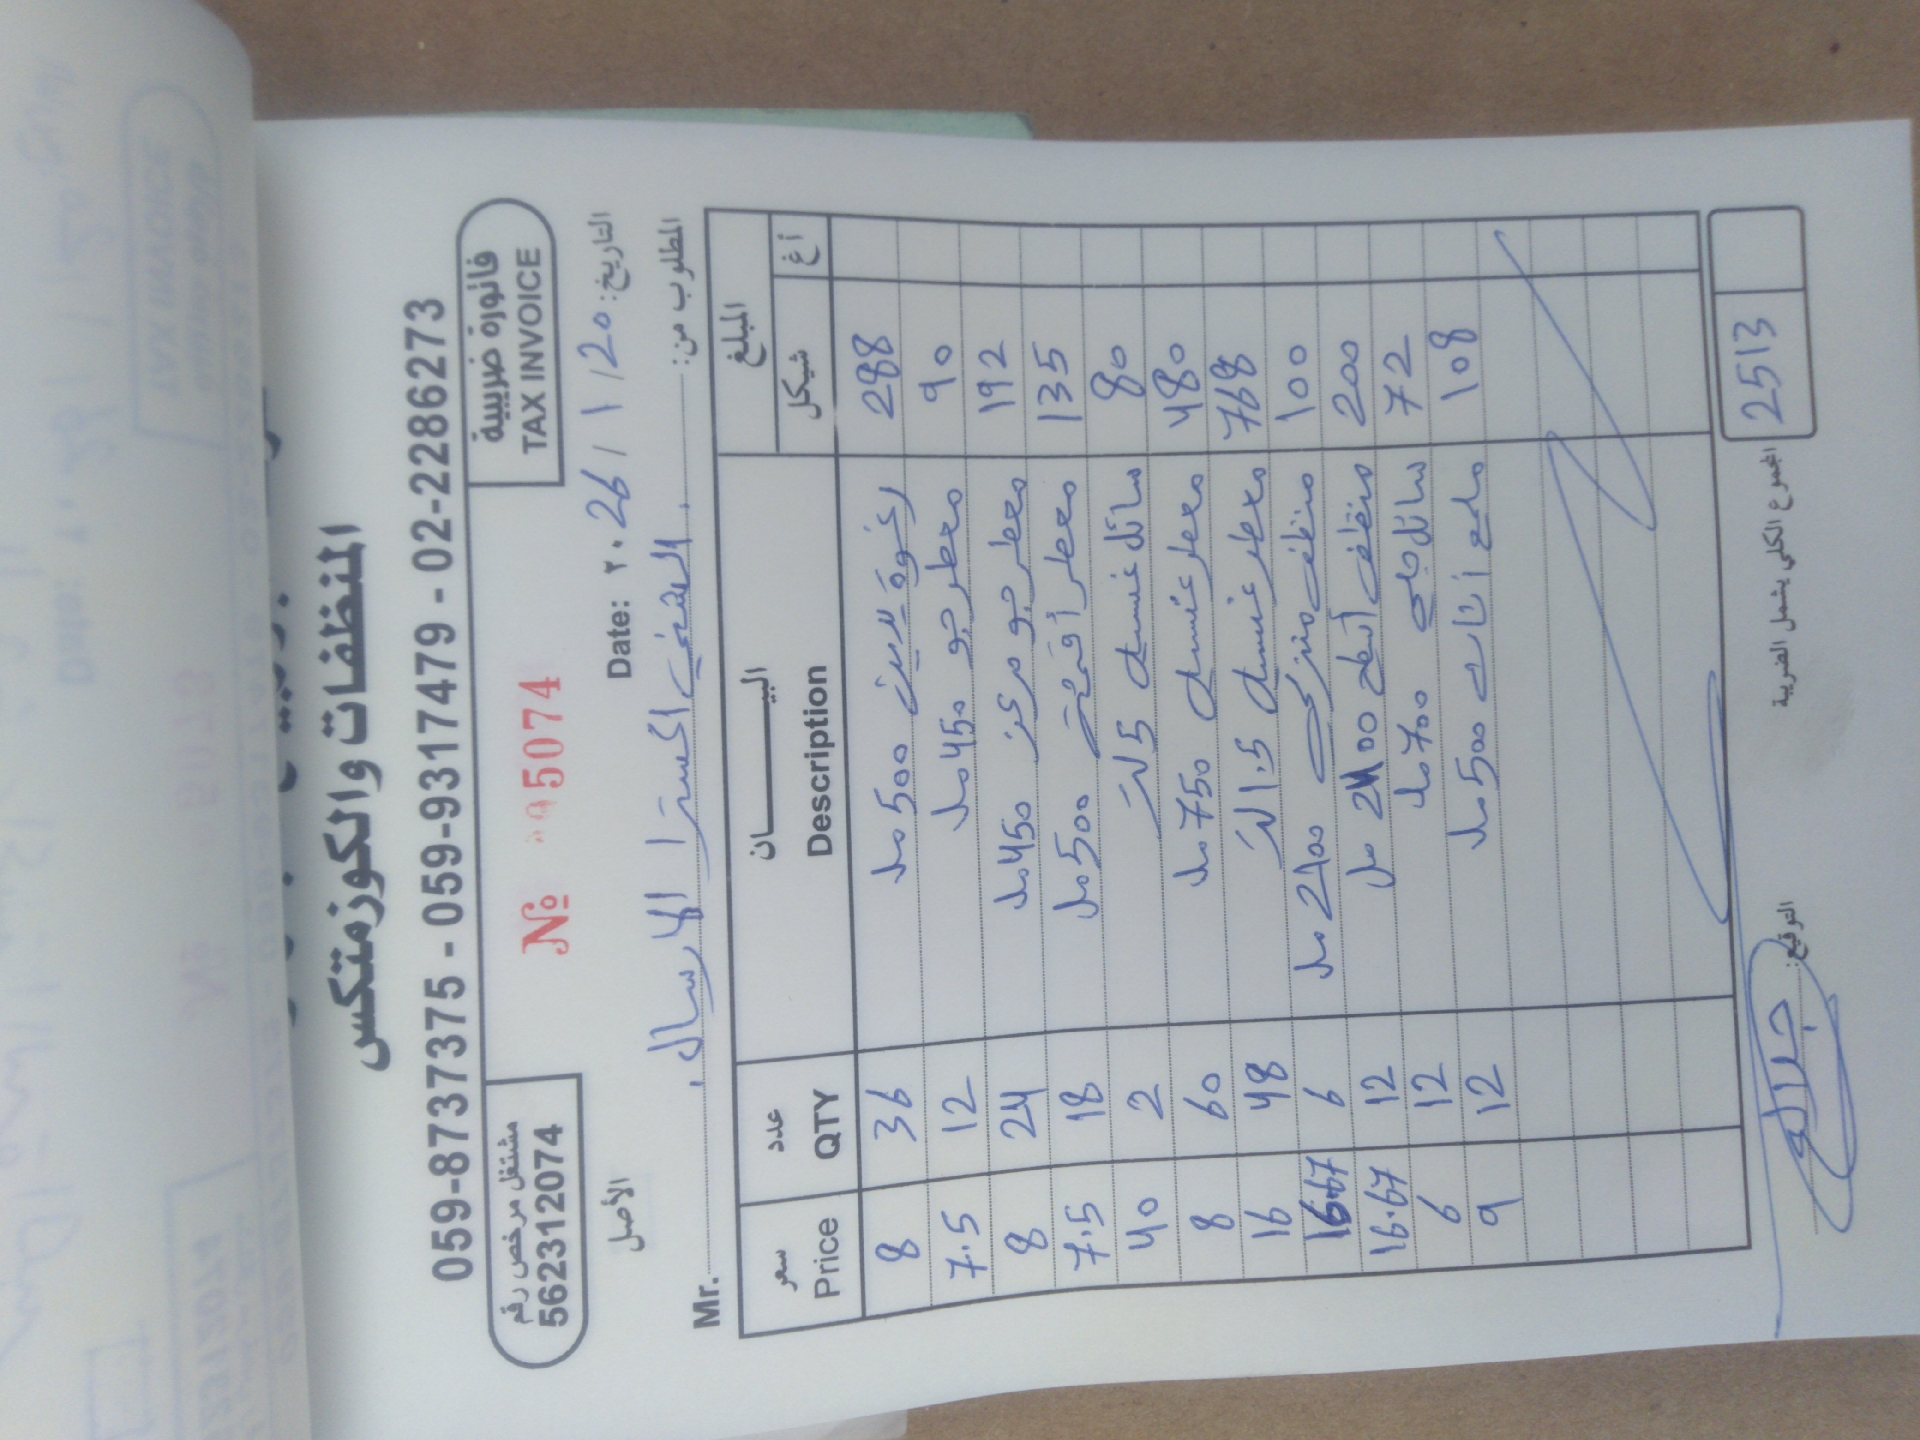 المنظفات والكوزمتكس
059-8737375 - 059-9317479 - 02-2286273
فاتورة ضريبية
TAX INVOICE
№ 005074
مشتغل مرخص رقم
562312074
التاريخ: 20 / 1 / 26٢٠ Date:
الأصل
المطلوب من: السفير اكسترا الارسال. Mr.
المبلغ البيـــــان عدد سعر
شيكل أغ Description QTY Price
288 رغوة يدين 500 مل 36 8
90 معطر جو 450 مل 12 7.5
192 معطر جو مركز 450 مل 24 8
135 معطر أقمشة 500 مل 18 7.5
80 سائل غسيل 5 لتر 2 40
480 معطر غسيل 750 مل 60 8
768 معطر غسيل 1.5 لتر 48 16
100 منظف منزلي 2100 مل 6 16.67
200 منظف أسطح 2100 مل 12 16.67
72 سائل جلي 700 مل 12 6
108 ملمع أثاث 500 مل 12 9
المجموع الكلي يشمل الضريبة 2513
التوقيع: